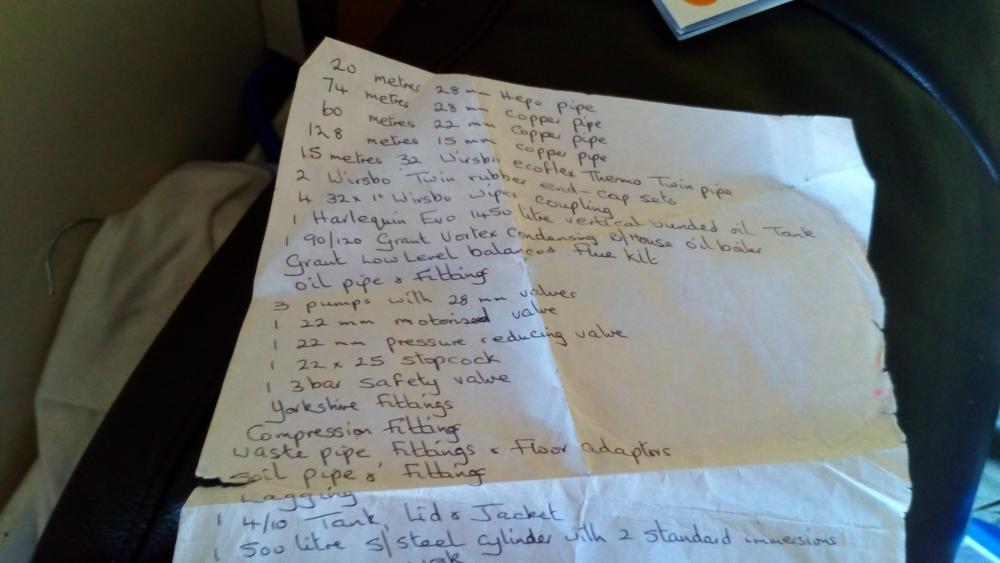 20 metres 28 mm Hepo pipe
74 metres 28 mm copper pipe
60 metres 22 mm copper pipe
128 metres 15 mm copper pipe
15 metres 32 Wirsbo ecoflex Thermo Twin pipe
2 Wirsbo Twin rubber end-cap sets
4 32x1" Wirsbo wipex coupling
1 Harlequin Evo 1450 litre vertical bunded oil Tank
1 90/120 Grant Vortex Condensing B/House oil boiler
Grant Low Level balanced flue kit
oil pipe & fittings
3 pumps with 28 mm valves
1 22 mm motorised valve
1 22 mm pressure reducing valve
1 22 x 25 stopcock
1 3 bar safety valve
Yorkshire fittings
Compression fitting
waste pipe fittings & floor adaptors
Soil pipe & fittings
Lagging
1 4/10 Tank, Lid & Jacket
1 500 litre S/Steel Cylinder with 2 standard immersions